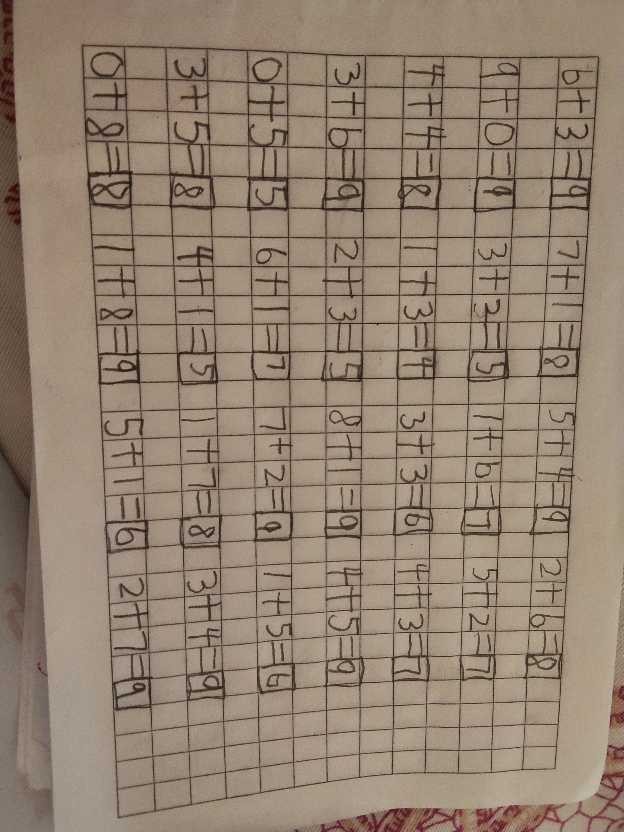 6+3=9 7+1=8 5+4=9 2+6=8
9+0=9 3+3=5 1+6=7 5+2=7
4+4=8 1+3=4 3+3=6 4+3=7
3+6=9 2+3=5 8+1=9 4+5=9
0+5=5 6+1=7 7+2=9 1+5=6
3+5=8 4+1=5 1+7=8 3+4=9
0+8=8 1+8=9 5+1=6 2+7=9